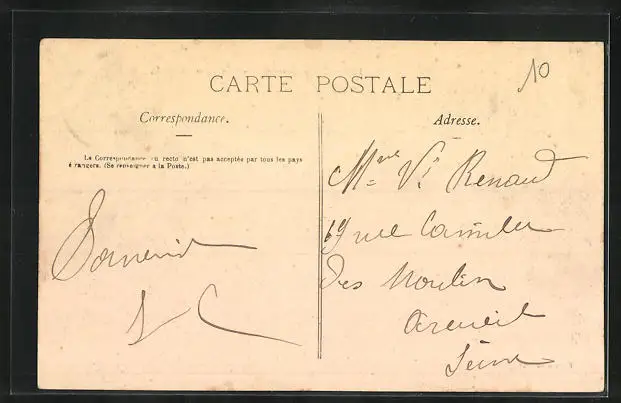 10
CARTE POSTALE
Correspondance.
Adresse.
La Correspondance au recto n'est pas acceptée par tous les pays
érangers. (Se renseigner à la Poste.)
Souvenir
L C
Mme Ve Renaud
69 rue Camille
Des Moulin
Arcueil
Seine